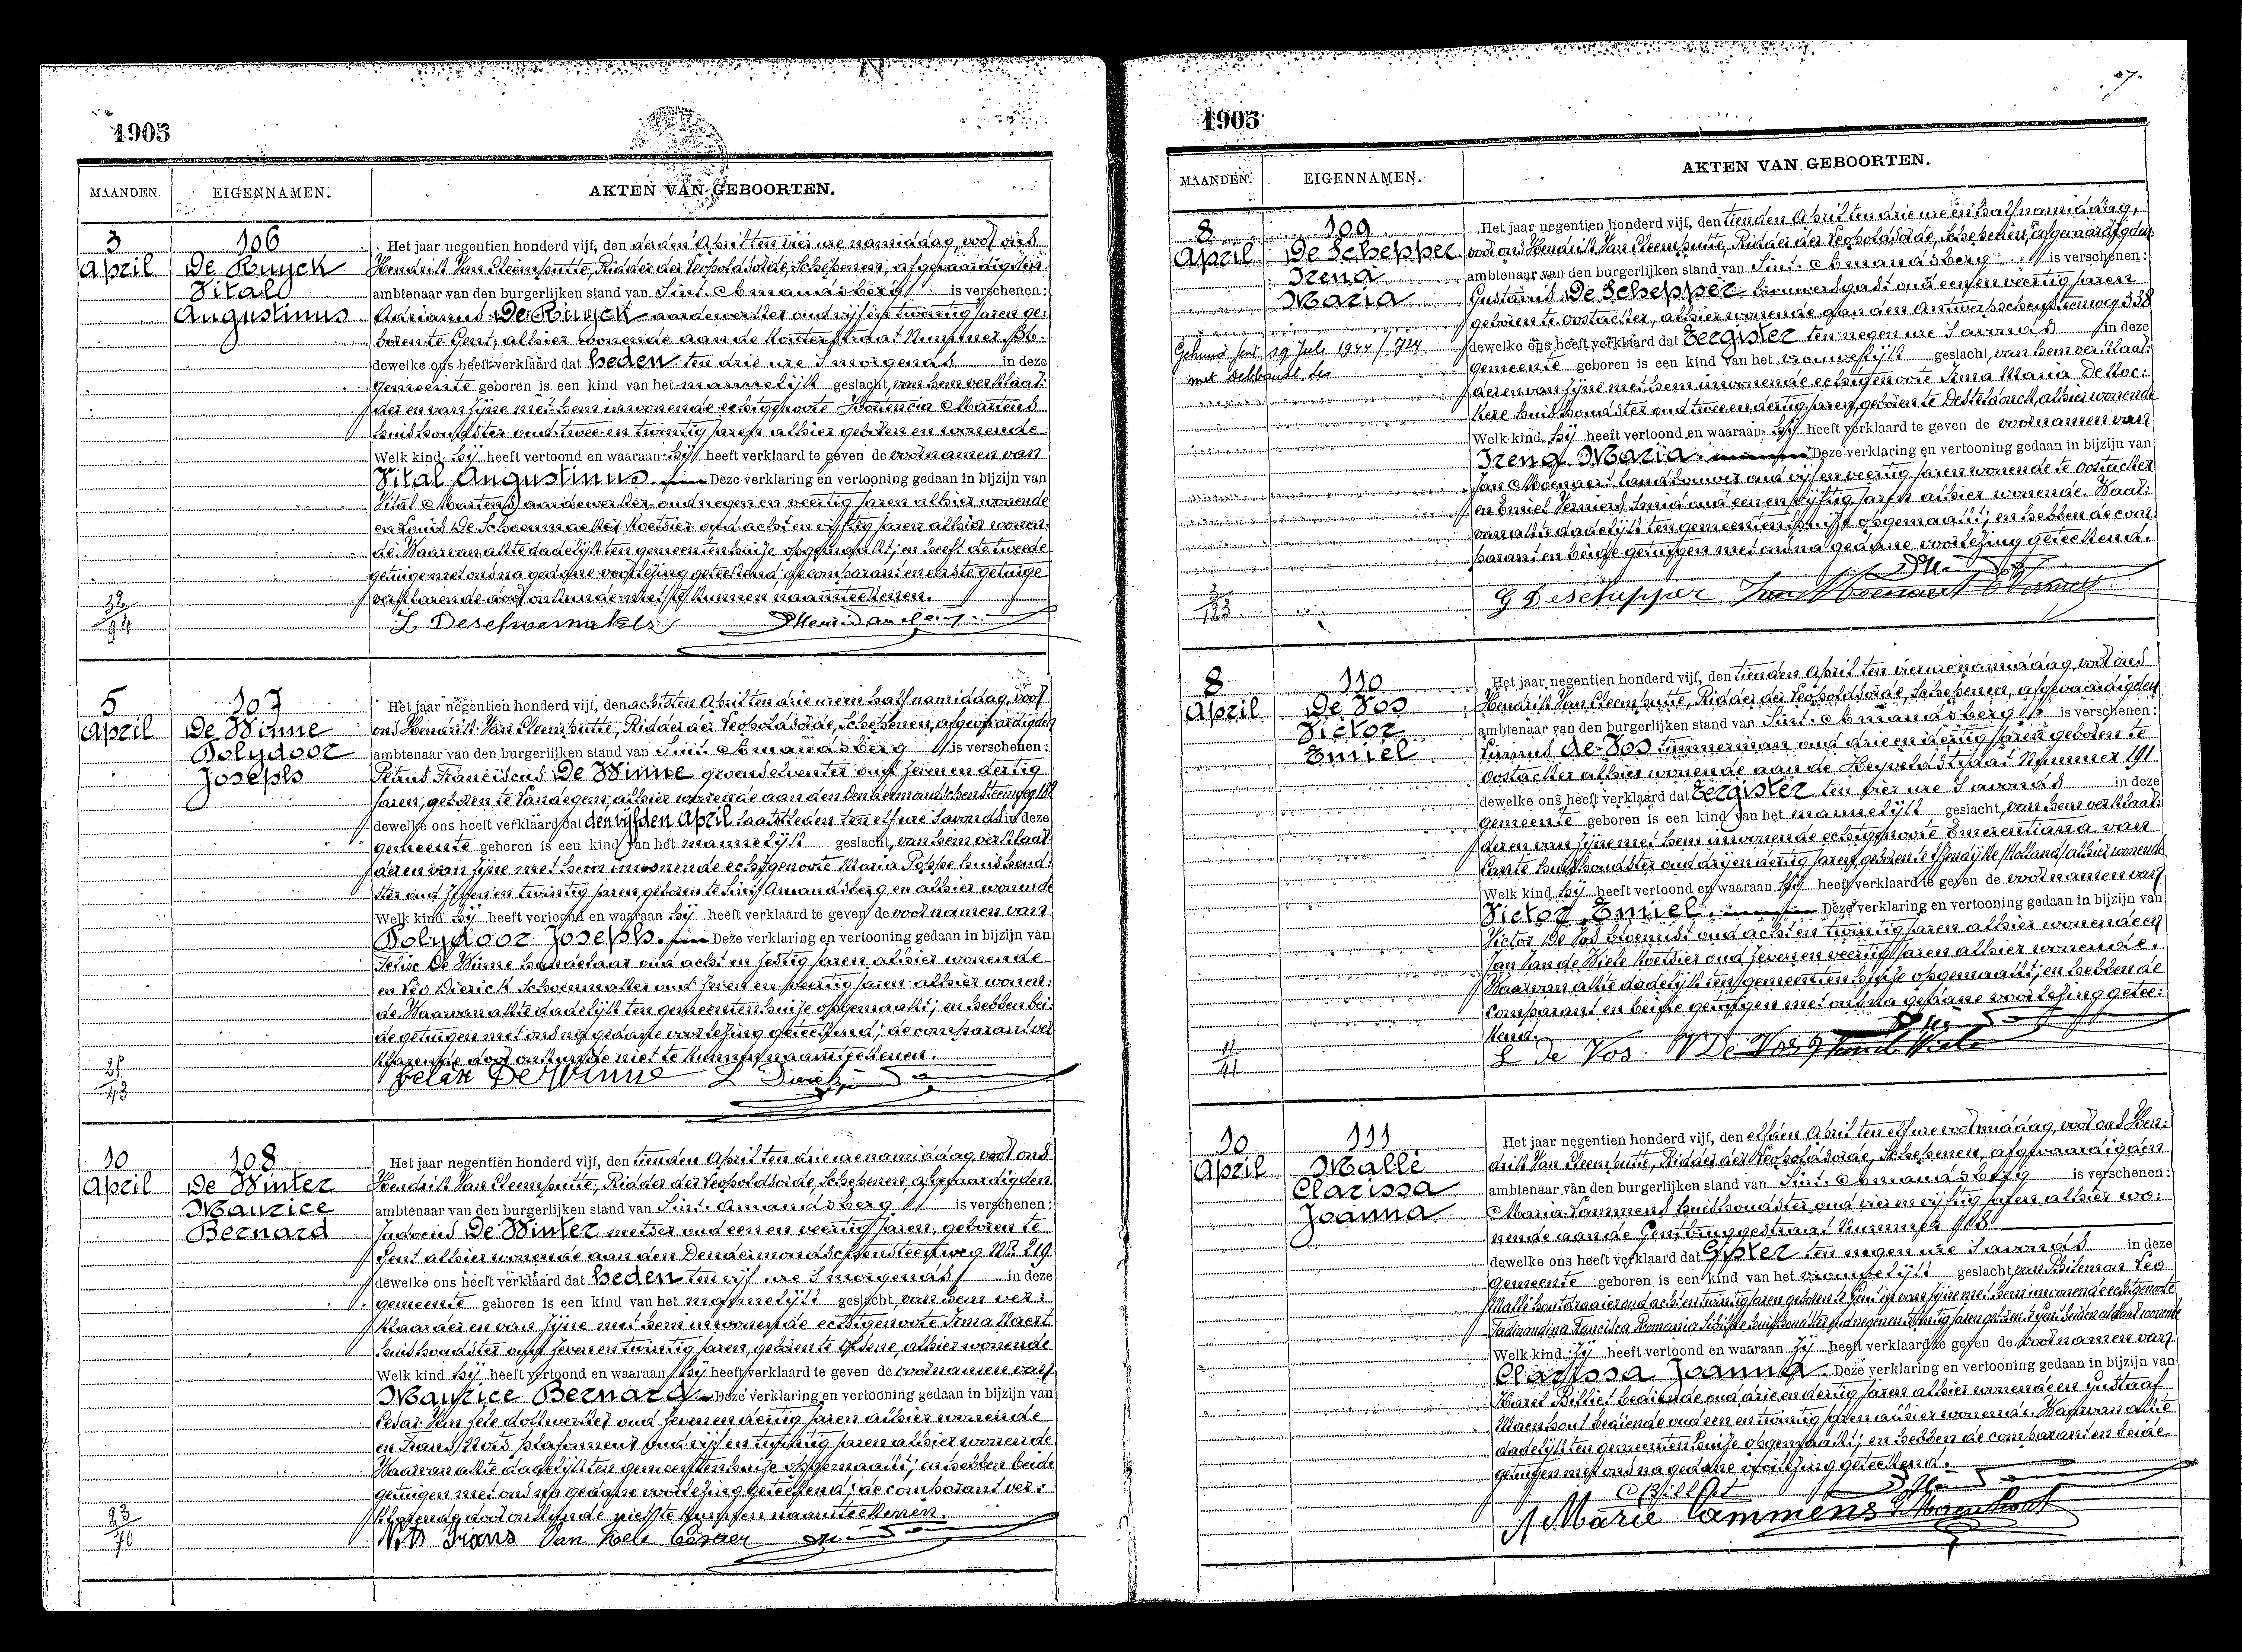 1905
MAANDEN. EIGENNAMEN. AKTEN VAN GEBOORTEN.
3 April
106
De Kuyck
Vital
Augustinus
Het jaar negentien honderd vijf, den derden April ten vier ure namiddag, voor ons
Hendrik Van Cleemputte, Ridder der Leopoldsorde, Schepenen, afgevaardigden
ambtenaar van den burgerlijken stand van Sint-Amandsberg is verschenen:
Adrianus De Kuyck aardewerker oud vijf en twintig jaren ge:
boren te Gent, alhier wonende aan de Kosterstraat Nummer
dewelke ons heeft verklaard dat heden ten drie ure 's morgends in deze
gemeente geboren is een kind van het mannelijk geslacht, van hem verklaar:
der en van zijne met hem inwonende echtgenoote Martens
huishoudster oud twee en twintig jaren alhier geboren en wonende
Welk kind hij heeft vertoond en waaraan hij heeft verklaard te geven de voornamen van
Vital Augustinus. Deze verklaring en vertooning gedaan in bijzijn van
Vital Martens aardewerker oud negen en veertig jaren alhier wonende
en Louis De Schoenmaker koetsier oud acht en vijftig jaren alhier wonen:
de. Waarvan akte dadelijk ten gemeentenhuize opgemaakt; en heeft de tweede
getuige met ons na gedane voorlezing geteekend de comparant en eerste getuige
verklarende door onkunde niet te kunnen naamteekenen.
L Deschoenmaker
5 April
107
De Winne
Polydoor
Joseph
Het jaar negentien honderd vijf, den achtsten April ten drie ure en half namiddag, voor
ons Hendrik Van Cleemputte, Ridder der Leopoldsorde, Schepenen, afgevaardigden
ambtenaar van den burgerlijken stand van Sint-Amandsberg is verschenen:
Petrus Franciscus De Winne groenselventer oud zeven en dertig
jaren, geboren te Landegem, alhier wonende aan den Dendermondschensteenweg
dewelke ons heeft verklaard dat den vijfden April laatstleden ten elf ure 's avonds in deze
gemeente geboren is een kind van het mannelijk geslacht, van hem verklaar:
der en van zijne met hem inwonende echtgenoote Maria Poppe huishoud:
ster oud zeven en twintig jaren, geboren te Sint Amandsberg, en alhier wonende
Welk kind hij heeft vertoond en waaraan hij heeft verklaard te geven de voornamen van
Polydoor Joseph. Deze verklaring en vertooning gedaan in bijzijn van
Felix De Winne handelaar oud acht en zestig jaren alhier wonende
en Leo Dierick schoenmaker oud zeven en veertig jaren alhier wonen:
de. Waarvan akte dadelijk ten gemeentenhuize opgemaakt; en hebben bei:
de getuigen met ons na gedane voorlezing geteekend; de comparant ver:
klarende door onkunde niet te kunnen naamteekenen.
Felix De Winne L Dierick
10 April
108
De Winter
Maurice
Bernard
Het jaar negentien honderd vijf, den tienden April ten drie ure namiddag, voor ons
Hendrik Van Cleemputte, Ridder der Leopoldsorde, Schepenen, afgevaardigden
ambtenaar van den burgerlijken stand van Sint-Amandsberg is verschenen:
Judocus De Winter metser oud een en veertig jaren, geboren te
Gent alhier wonende aan den Dendermondschensteenweg Nr. 219
dewelke ons heeft verklaard dat heden ten vijf ure 's morgends in deze
gemeente geboren is een kind van het mannelijk geslacht, van hem ver:
klaarder en van zijne met hem inwonende echtgenoote Irma Naert
huishoudster oud zeven en twintig jaren, geboren te Olsene, alhier wonende
Welk kind hij heeft vertoond en waaraan hij heeft verklaard te geven de voornamen van
Maurice Bernard. Deze verklaring en vertooning gedaan in bijzijn van
Cesar Van Hele dokwerker oud zeven en dertig jaren alhier wonende
en Frans Nots plafonneur oud vijf en twintig jaren alhier wonende
Waarvan akte dadelijk ten gemeentenhuize opgemaakt; en hebben beide
getuigen met ons na gedane voorlezing geteekend; de comparant ver:
klarende door onkunde niet te kunnen naamteekenen.
Nots Frans Van Hele Cesar
1905
MAANDEN. EIGENNAMEN. AKTEN VAN GEBOORTEN.
8 April
109
De Schepper
Irena
Maria
29 Juli 1944
Het jaar negentien honderd vijf, den tienden April ten drie ure en half namiddag,
voor ons Hendrik Van Cleemputte, Ridder der Leopoldsorde, Schepenen, afgevaardigden
ambtenaar van den burgerlijken stand van Sint-Amandsberg is verschenen:
Gustavus De Schepper brouwersgast oud een en veertig jaren
geboren te Oostacker, alhier wonende aan den Antwerpschensteenweg 338
dewelke ons heeft verklaard dat eergister ten negen ure 's avonds in deze
gemeente geboren is een kind van het vrouwelijk geslacht, van hem verklaar:
der en van zijne met hem inwonende echtgenoote Irma Maria De Noc:
kere huishoudster oud twee en dertig jaren, geboren te Desteldonck, alhier wonende
Welk kind hij heeft vertoond en waaraan hij heeft verklaard te geven de voornamen van
Irena Maria. Deze verklaring en vertooning gedaan in bijzijn van
Jan Moenaert landbouwer oud vijf en veertig jaren wonende te Oostacker
en Emiel Verniers smid oud een en vijftig jaren alhier wonende. Waar:
van akte dadelijk ten gemeentenhuize opgemaakt; en hebben de com:
parant en beide getuigen met ons na gedane voorlezing geteekend.
G Deschepper
8 April
110
De Vos
Victor
Emiel
Het jaar negentien honderd vijf, den tienden April ten vier ure namiddag, voor ons
Hendrik Van Cleemputte, Ridder der Leopoldsorde, Schepenen, afgevaardigden
ambtenaar van den burgerlijken stand van Sint-Amandsberg is verschenen:
De Vos timmerman oud drie en dertig jaren geboren te
Oostacker alhier wonende aan de Heyveldstraat Nummer 191
dewelke ons heeft verklaard dat eergister ten vier ure 's avonds in deze
gemeente geboren is een kind van het mannelijk geslacht, van hem verklaar:
der en van zijne met hem inwonende echtgenoote Emerentiana van
huishoudster oud drij en dertig jaren, geboren te IJzendijke /Holland/ alhier wonende
Welk kind hij heeft vertoond en waaraan hij heeft verklaard te geven de voornamen van
Victor Emiel. Deze verklaring en vertooning gedaan in bijzijn van
Victor De Vos bloemist oud acht en twintig jaren alhier wonende en
Jan Van de Wiele koetsier oud zeven en veertig jaren alhier wonende.
Waarvan akte dadelijk ten gemeentenhuize opgemaakt; en hebben de
comparant en beide getuigen met ons na gedane voorlezing getee:
kend.
De Vos V De Vos
10 April
111
Mallé
Clarissa
Joanna
Het jaar negentien honderd vijf, den elfden April ten elf ure voormiddag, voor ons Hen:
drik Van Cleemputte, Ridder der Leopoldsorde, Schepenen, afgevaardigden
ambtenaar van den burgerlijken stand van Sint-Amandsberg is verschenen:
Maria Lammens huishoudster oud vier en vijftig jaren alhier wo:
nende aan de Gentbruggestraat Nummer 118
dewelke ons heeft verklaard dat gister ten negen ure 's avonds in deze
gemeente geboren is een kind van het vrouwelijk geslacht, van Philemon Leo
Mallé houtdraaier oud acht en twintig jaren geboren te Gent en van zijne met hem inwonende echtgenoote
Ferdinandina Francisca Romania huishoudster oud negen en twintig jaren geboren te Gent beiden aldaar wonende
Welk kind zij heeft vertoond en waaraan zij heeft verklaard te geven de voornamen van
Clarissa Joanna. Deze verklaring en vertooning gedaan in bijzijn van
Karel Billiet bediende oud drie en dertig jaren alhier wonende en Gustaaf
Maenhout bediende oud een en twintig jaren alhier wonende. Waarvan akte
dadelijk ten gemeentenhuize opgemaakt; en hebben de comparant en beide
getuigen met ons na gedane voorlezing geteekend.
C Billiet
Marie Lammens G Maenhout